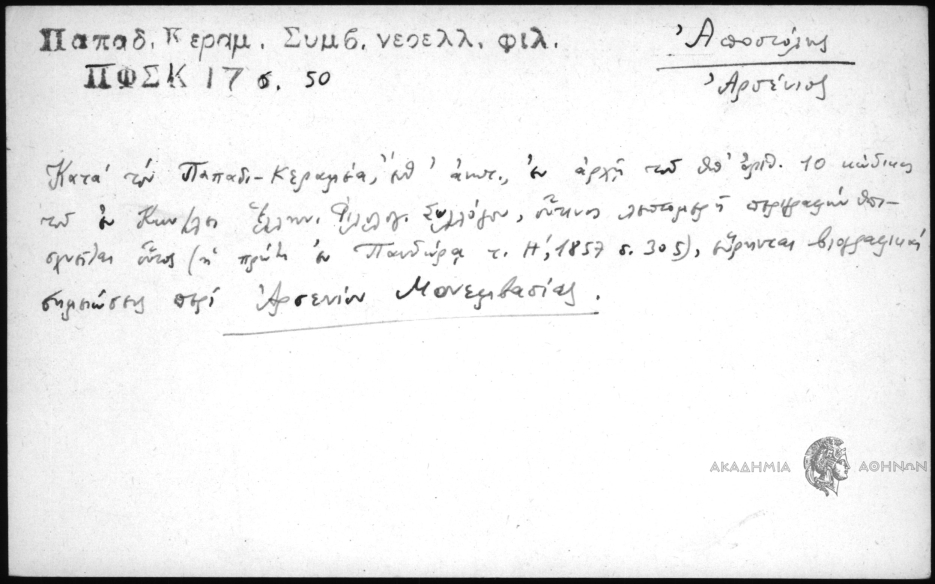 Παπαδ. Κεραμ. Συμβ. νεοελλ. φιλ.
ΠΦΣΚ 17 σ. 50
Ἀποστόλης
Ἀρσένιος
Κατὰ τὸν Παπαδ-Κεραμέα, ἔνθ' ἀνωτ., ἐν ἀρχῇ τοῦ ὑπ' ἀριθ. 10 κώδικος
τοῦ ἐν Κων/λει Ἑλλην. Φιλολογ. Συλλόγου, οὗτινος λεπτομερῆ περιγραφὴν ὑπι-
οὗτος (ἡ πρώτη ἐν Πανδώρᾳ τ. Η', 1857 σ. 305), εὕρηνται βιογραφικαὶ
σημειώσεις περὶ Ἀρσενίου Μονεμβασίας.
ΑΚΑΔΗΜΙΑ ΑΘΗΝΩΝ